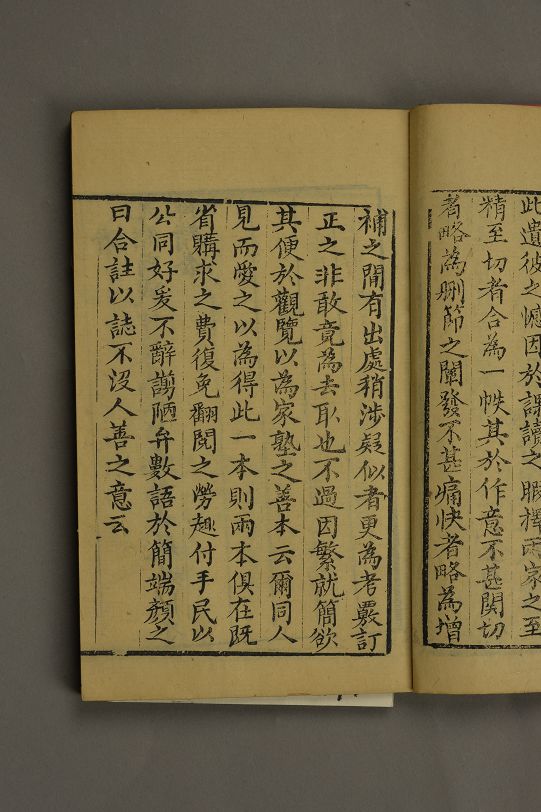 此遺彼之憾因於課讀之暇擇兩家之至
精至切者合為一帙其於作意不甚関切
者略為刪節之闡發不甚痛快者略為增
補之間有出處稍涉疑似者更為考覈訂
正之非敢竟為去取也不過因繁就簡欲
其便於觀覽以為家塾之善本云爾同人
見而愛之以為得此一本則兩本俱在既
省購求之費復免翻閱之勞趣付手民以
公同好爰不辭謭陋弁數語於簡端顏之
曰合註以誌不沒人善之意云